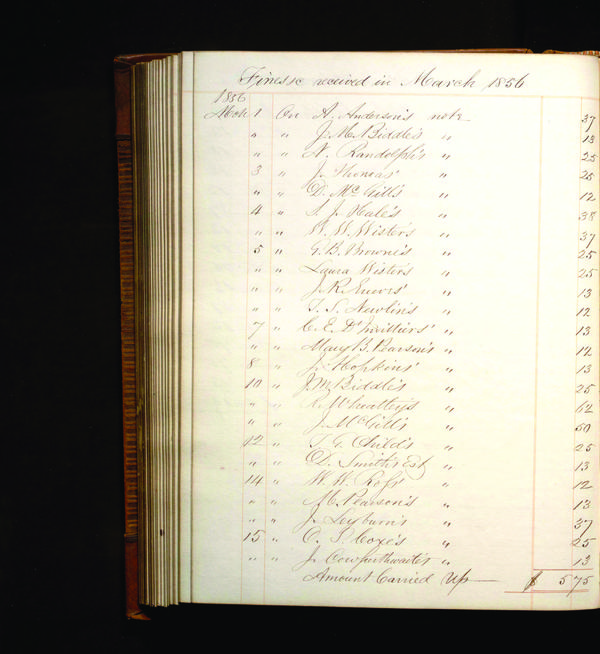 Fines &c received in March 1856
1856
Mch 1 On A. Anderson's note 37
" " J. M. Biddle's " 13
" " N. Randolph's " 25
3 " J. Thomas' " 25
" " D. McGill's " 12
4 " S. J. Hale's " 38
" " W. W. Wister's " 37
5 " G. B. Browne's " 25
" " Laura Wister's " 25
" " J. R. " 13
" " T. S. Newlin's " 12
7 " C. E. D'Invilliers' " 13
" " Mary B. Pearson's " 12
8 " J. Hopkins' " 13
10 " J. M. Biddle's " 25
" " R. Wheatley's " 62
" " J. McGill's " 50
12 " T. G. Child's " 25
" " D. Smith's Est " 13
14 " W. W. Ross' " 12
" " M. Pearson's " 13
" " J. Leyburn's " 37
15 " C. S. Coxe's " 25
" " J. Cowperthwaite's " 13
Amount Carried Up— $ 5 75